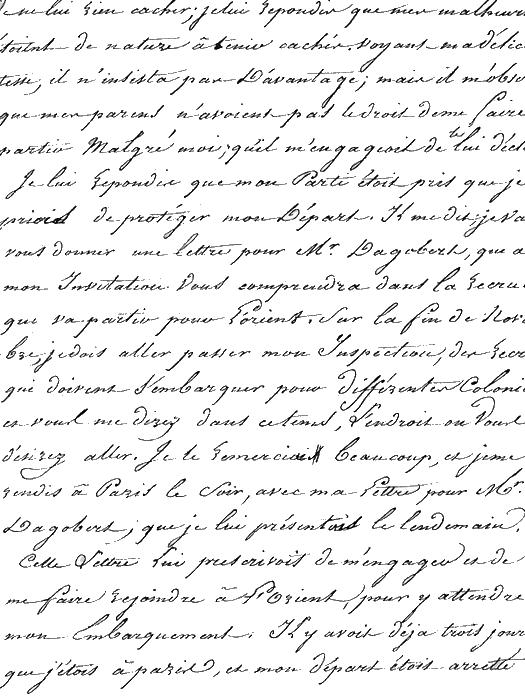 ne lui rien cacher; je lui repondis que mes malheurs
étoient de nature à tenir cachés voyant ma délica
tesse, il n'insista pas D'avantage; mais il m'obse
que mes parens n'avoient pas le droit de me faire
partir Malgré moi; qu'il m'engageoit de te lui décl
Je lui repondis que mon Parti étoit pris que je
priois de protéger mon Départ. Il me dit; je va
vous donner une lettre pour Mr. Dagobert, que a
mon Invitation vous comprendra dans la recrue
qui va partir pour L'orient. Sur la fin de Nove
bre je dois aller passer mon Inspection, des recr
qui doivent s'embarquer pour différentes Coloni
et vous me direz dans ce tems, L'endroit ou vous
désirez aller. Je le remerciai beaucoup, et je me
rendis à Paris le Soir, avec ma Lettre pour Mr.
Dagobert; que je lui présentois le lendemain.
Cette Lettre lui prescrivoit de m'engager et de
me faire rejoindre à L'Orient, pour y attendre
mon Embarquement. Il y avoit déja trois jour
que j'étois à paris, et mon départ étoit arretté